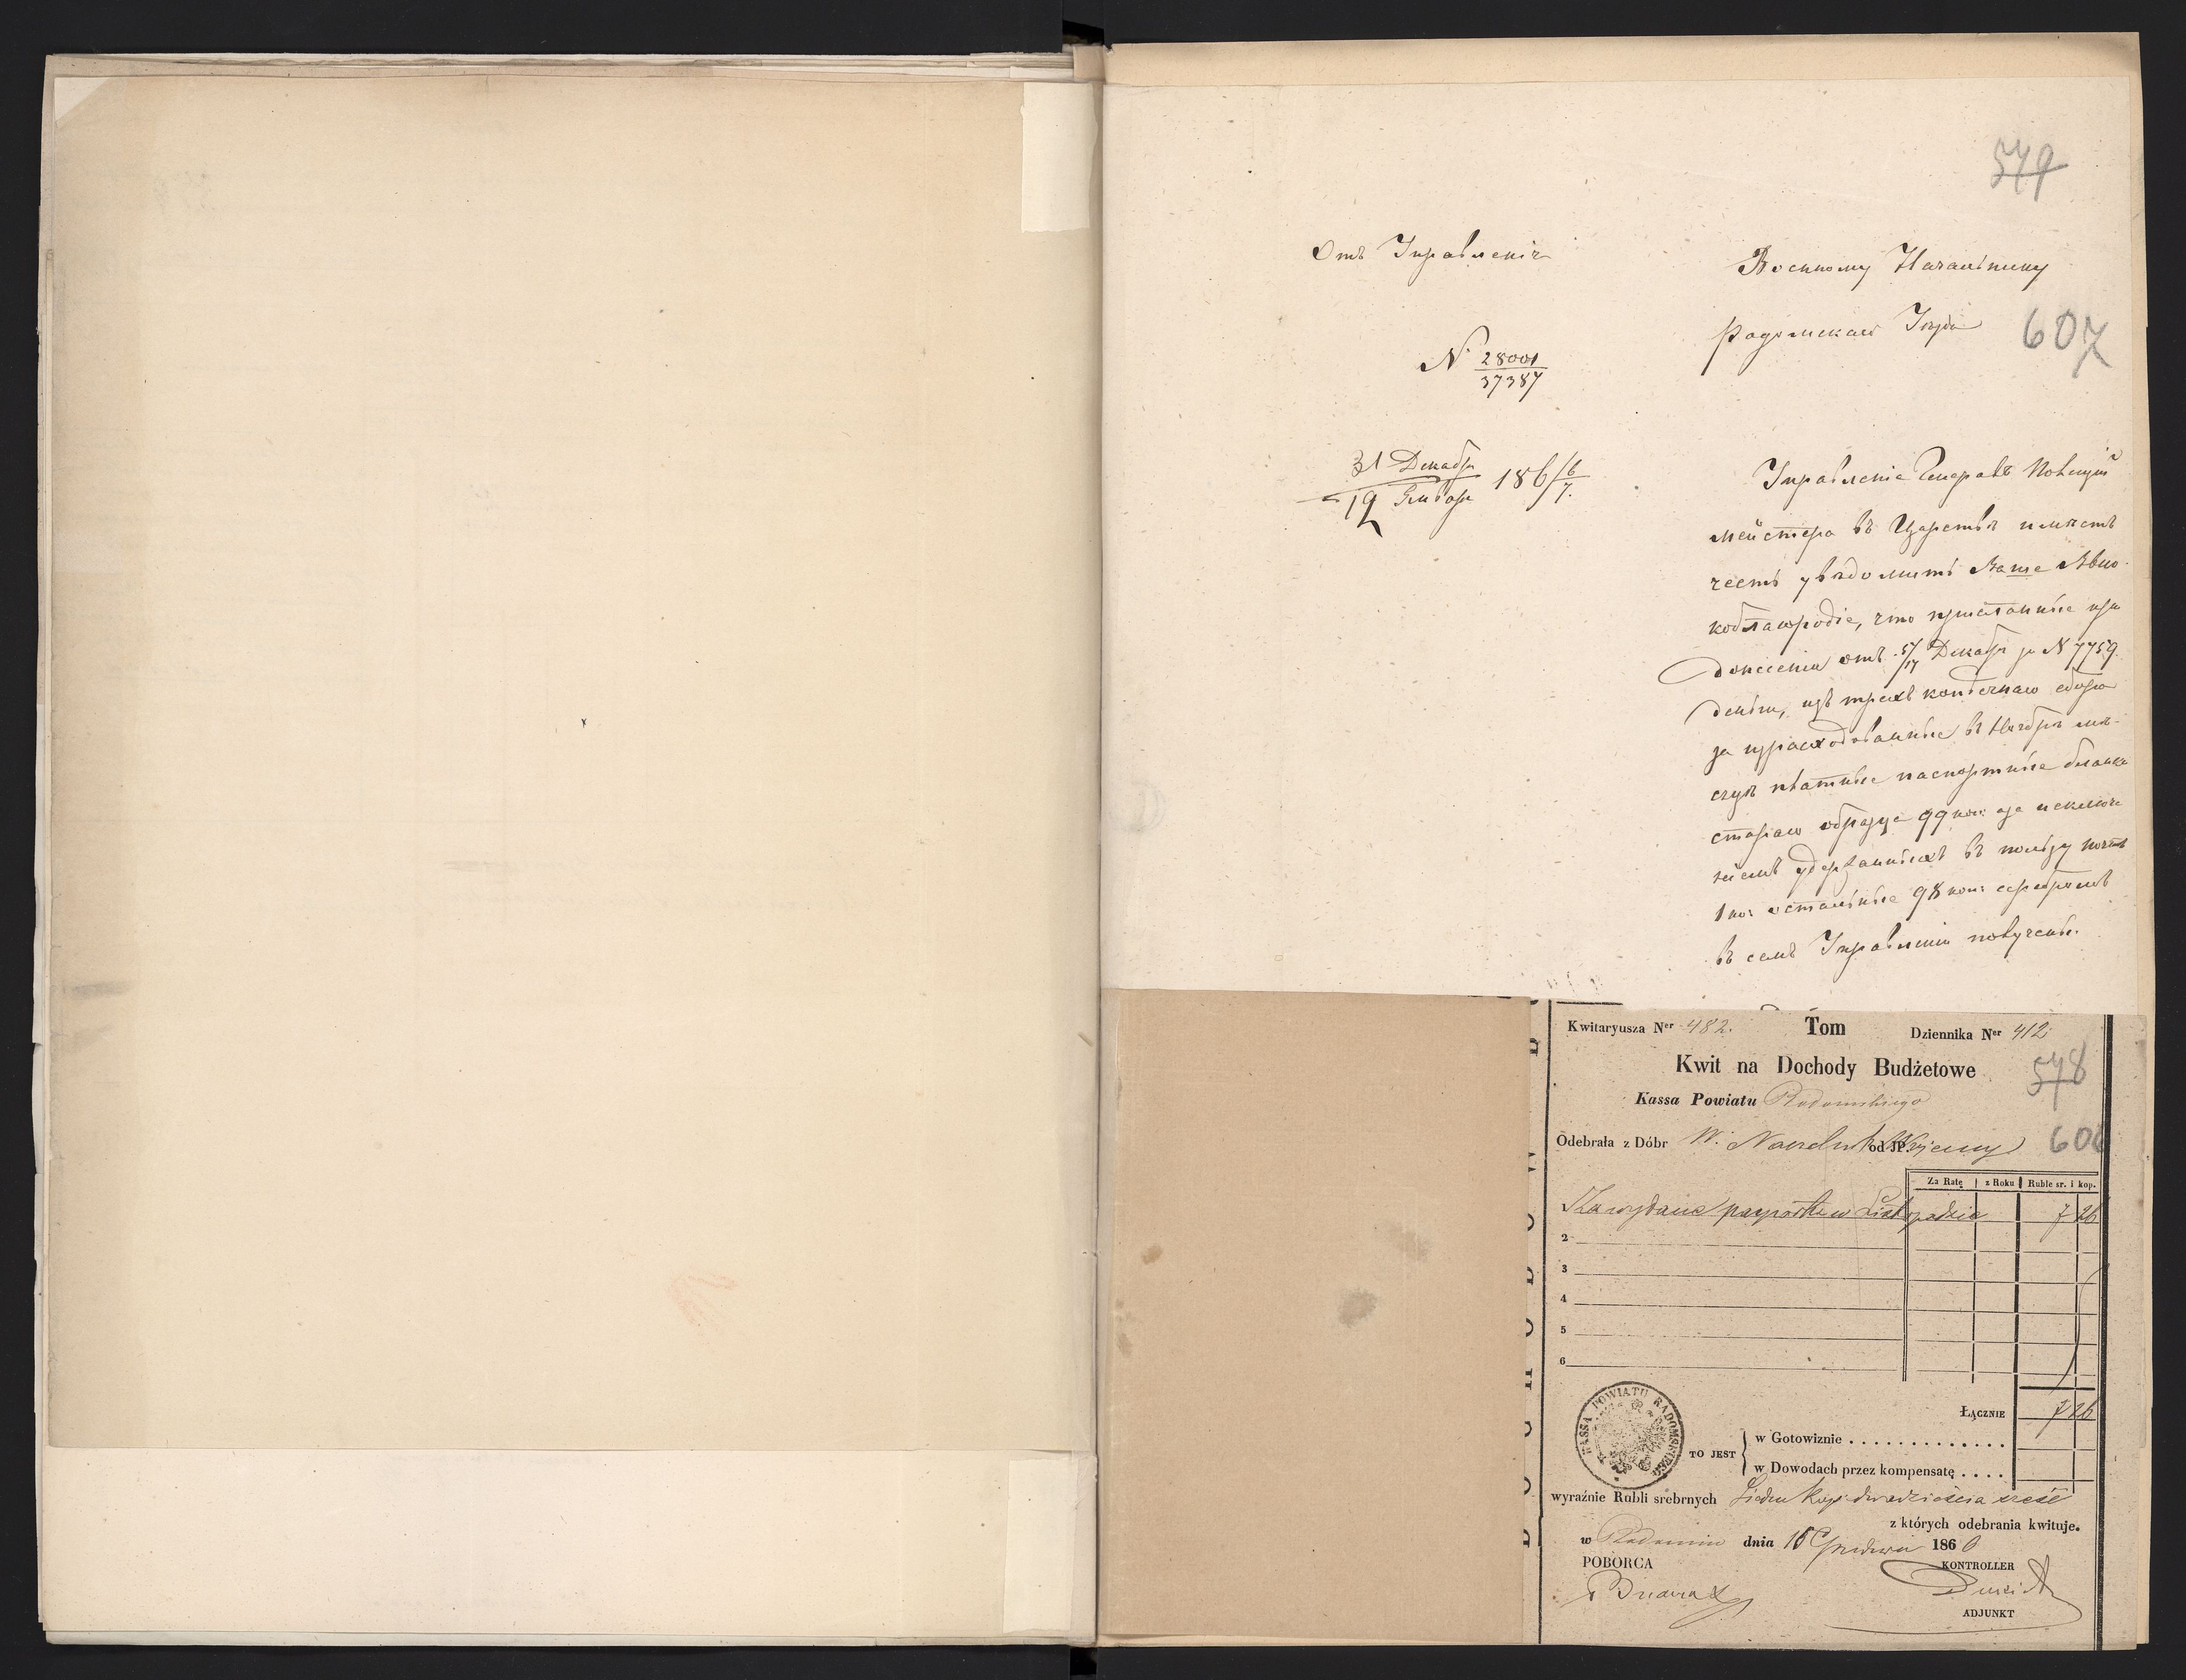 579
Отъ Управленія
Военному Начальнику
Радомскаго Уѣзда
607
N 28001
37387
31 Декабр
12 Январ 186 6/7.
Управленіе Генералъ Полиціи
мейстера въ Царствѣ имѣетъ
честь увѣдомить Ваше Высо-
коблагородіе, что присланные при
донесеніи отъ 5/17 Декабря за N 7759
деньги, изъ трехъ копѣечнаго сбора
за израсходованные въ Ноябрѣ мѣ-
сяцѣ платные паспортные бланки
стараго образца 99 коп: а за исключе
ніемъ удержанныхъ въ пользу почты
1 коп остальные 98 коп: серебромъ
въ семъ Управленіи получены.
Kwitaryusza Ner 482.
Tom
Dziennika Ner 412
Kwit na Dochody Budżetowe
578
Kassa Powiatu Radomskiego
Odebrała z Dóbr W. Naczelnik od JP. Wojenny
606
Za Ratę z Roku Ruble sr. i kop.
1 Za wydane paszporta w Listopadzie 7 26
2
3
4
5
6
ŁĄCZNIE 7 26
KASSA POWIATU RADOMSKIEGO
TO JEST
w Gotowiznie . . . . . . . . . . . . .
w Dowodach przez kompensatę . . . .
wyraźnie Rubli srebrnych Siedm kop: dwadzieścia sześć
z których odebrania kwituje.
w Radomiu dnia 15 Grudnia 1866
POBORCA
KONTROLLER
ADJUNKT